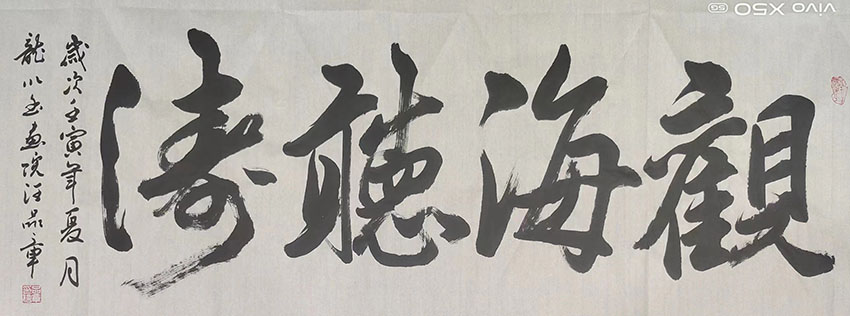 觀海聽濤
歲次壬寅年夏月
龍川書畫院汪品章
vivo X50 5G